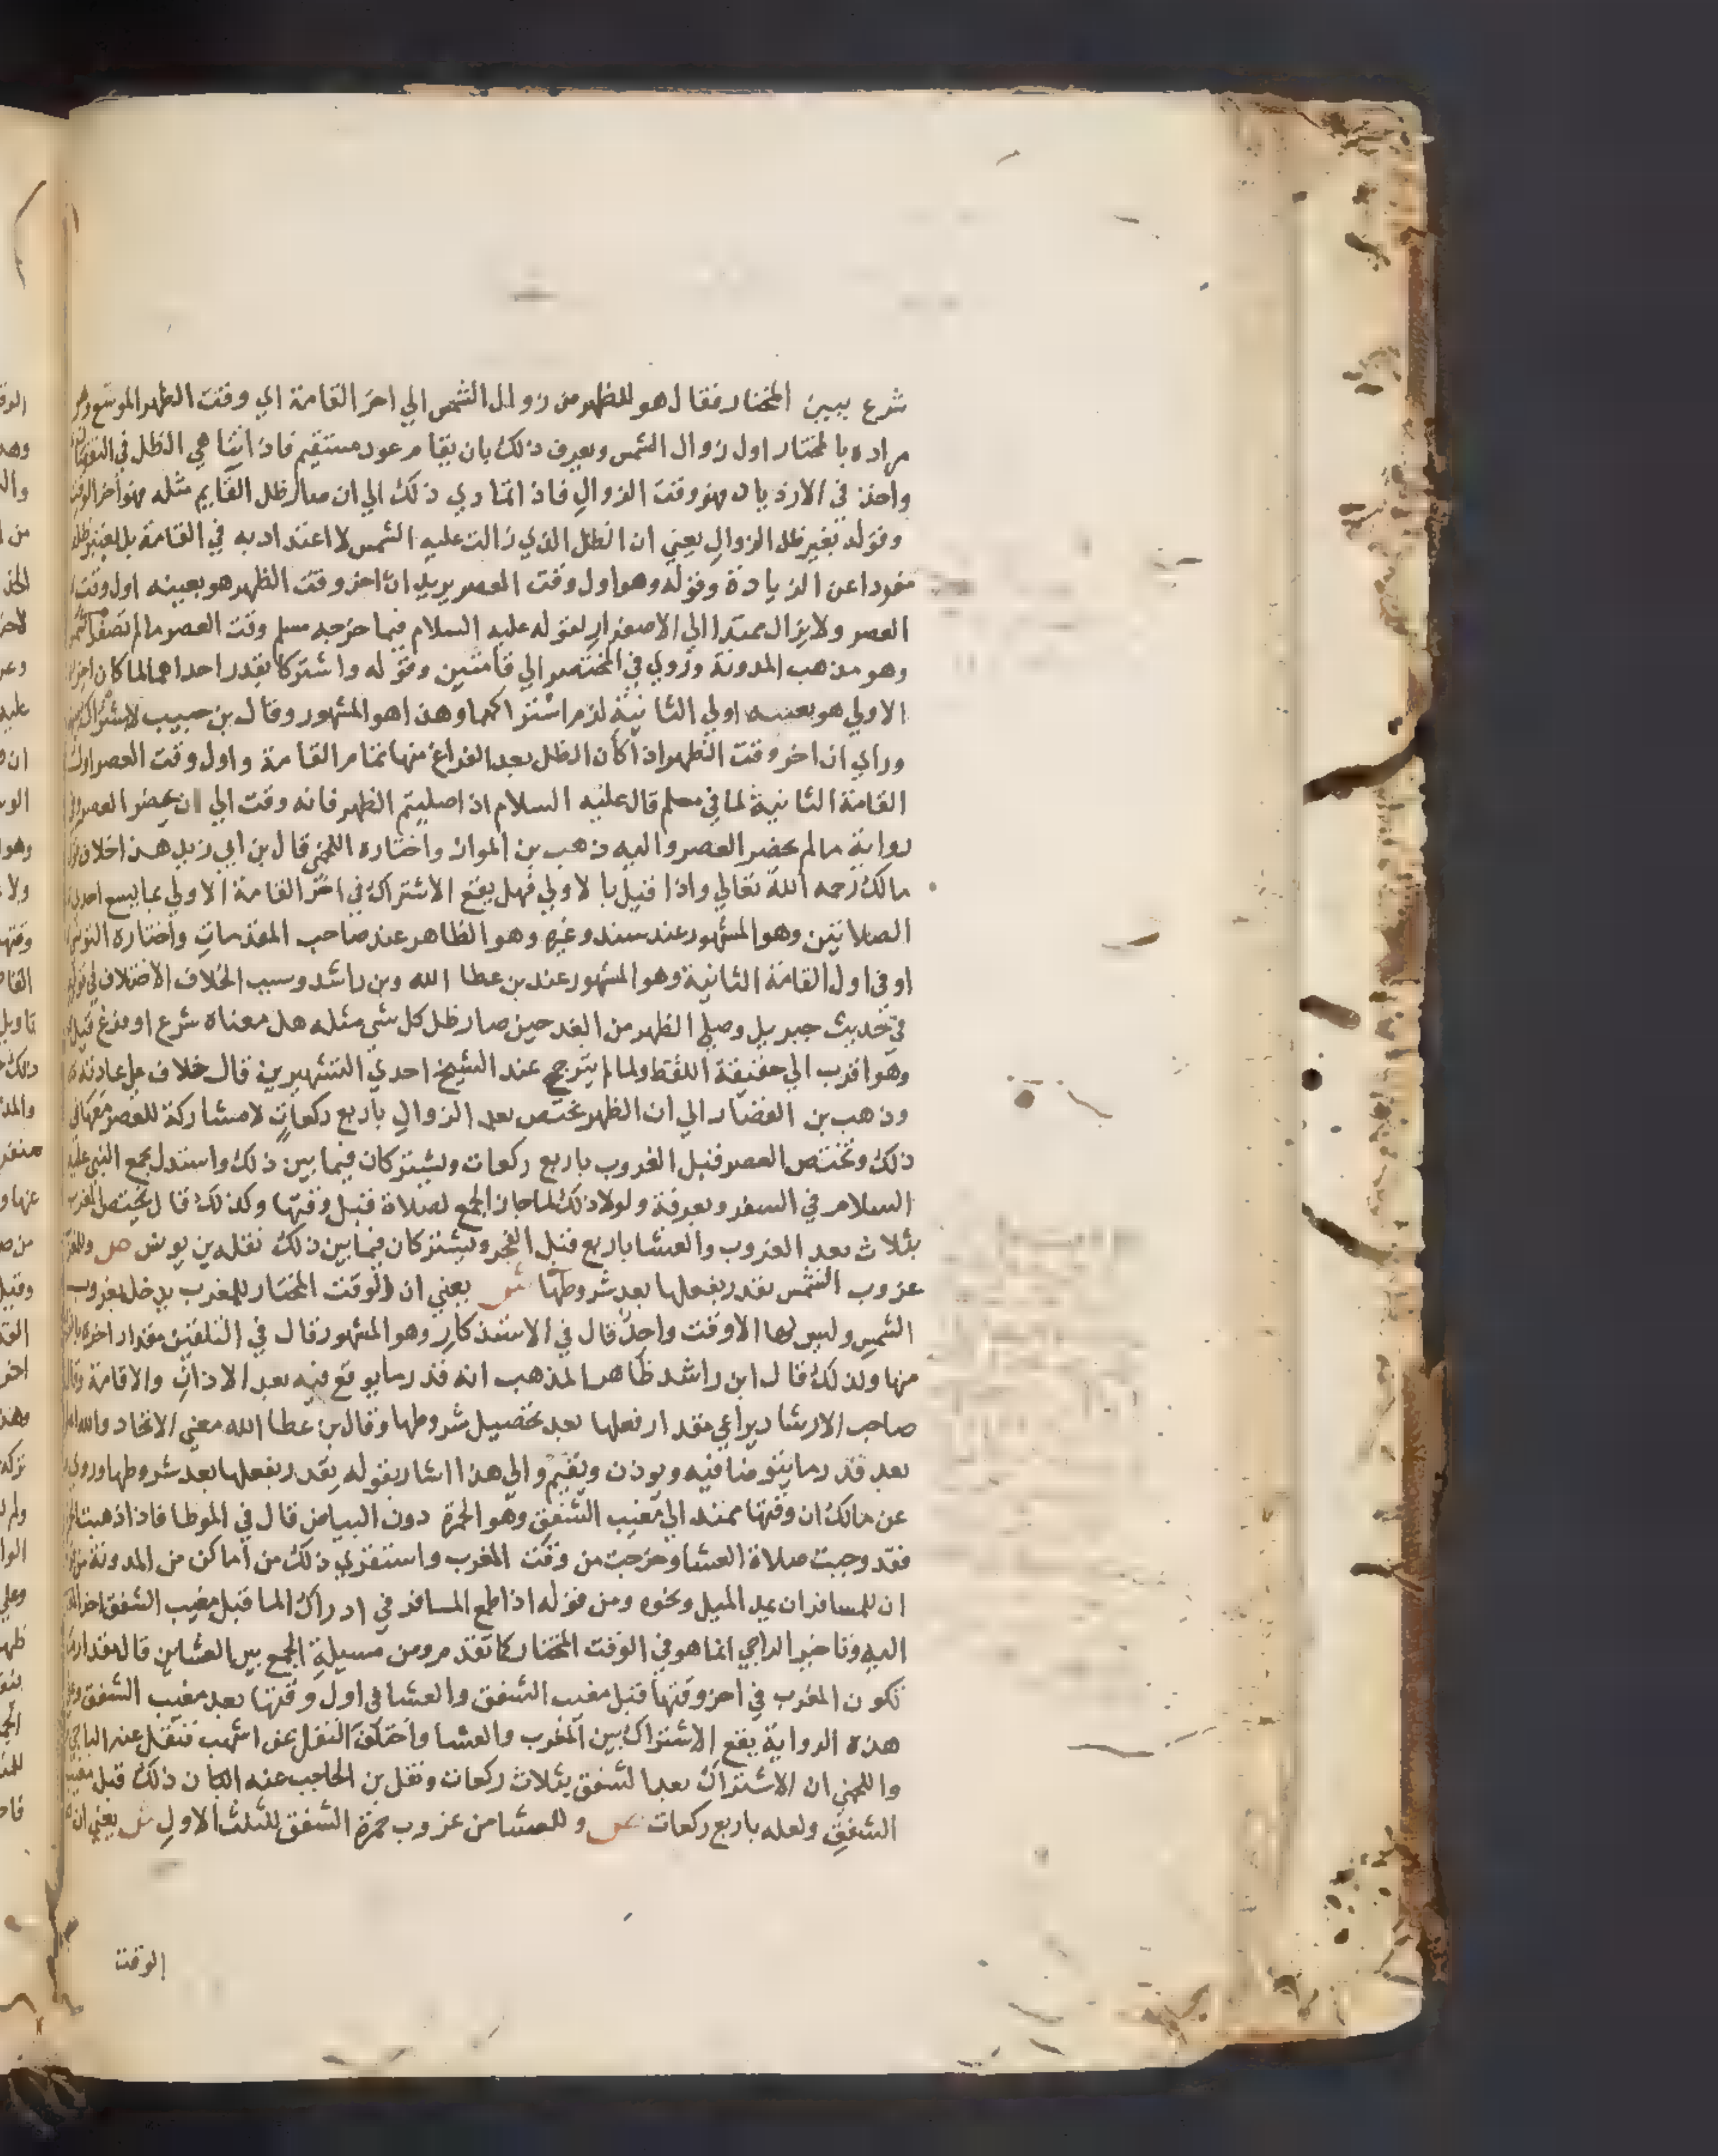 شرع يبين المختار فقال هو للظهر من زوال الشمس الي اخر القامة اي وقت الظهر الموسع
مراده بالمختار اول زوال الشمس ويعرف ذلك بان يقام عود مستقيم فاذا تناهي الظل في النقصان
واخذ في الازدياد فهو وقت الزوال فاذا تمادي ذلك الي ان صار ظل القايم مثله فهو اخر الوقت
وقوله بغير ظل الزوال يعني ان الظل الذي زالت عليه الشمس لا اعتداد به في القامة بل يعتبر ظله
مفردا عن الزيادة وقوله وهو اول وقت العصر يريد ان اخر وقت الظهر هو بعينه اول وقت
العصر ولا يزال ممتدا الي الاصفرار لقوله عليه السلام فيما خرجه مسلم وقت العصر ما لم تصفر الشمس
وهو مذهب المدونة وروي في المختصر الي قامتين وقوله واشتركا بقدر احداهما لما كان اخر
الاولي هو بعينه اولي الثانية لزم اشتراكهما وهذا هو المشهور وقال بن حبيب لا اشتراك
وراي ان اخر وقت الظهر اذا كان الظل بعد الفراغ منها تمام القامة واول وقت العصر اول
القامة الثانية لما في مسلم قال عليه السلام اذا صليتم الظهر فانه وقت الي ان يحضر العصر وفي
رواية ما لم يحضر العصر واليه ذهب بن المواز واختاره اللخمي قال بن ابي زيد هذا خلاف قول
مالك رحمه الله تعالي واذا قيل بالاولي فهل يقع الاشتراك في اخر القامة الاولي بما يسع احدي
الصلاتين وهو المشهور عند سند وغيره وهو الظاهر عند صاحب المقدمات واختاره التونسي
او في اول القامة الثانية وهو المشهور عند بن عطا الله وبن راشد وسبب الخلاف الاختلاف في قوله
في حديث جبريل وصلي الظهر من الغد حين صار ظل كل شي مثله هل معناه شرع او فرغ قيل
وهو اقرب الي حقيقة اللفظ ولما لم يترجح عند الشيخ احدي التشهيرين قال خلاف علي عادته
وذهب بن القصار الي ان الظهر تختص بعد الزوال باربع ركعات لا مشاركة للعصر معها في
ذلك وتختص العصر قبل الغروب باربع ركعات ويشتركان فيما بين ذلك واستدل بجمع النبي عليه
السلام في السفر وبعرفة ولولا ذلك لما جاز الجمع لصلاة قبل وقتها وكذلك قال تختص المغرب
بثلاث بعد الغروب والعشا باربع قبل الفجر ويشتركان فيما بين ذلك نقله بن يونس ص وللمغرب
غروب الشمس تقدر بفعلها بعد شروطها ش يعني ان الوقت المختار للمغرب يدخل بغروب
الشمس وليس لها الا وقت واحد قال في الاستذكار وهو المشهور قال في التلقين مقدار اخره بالفراغ
منها ولذلك قال ابن راشد ظاهر المذهب انه قدر ما يوقع فيه بعد الاذان والاقامة وقال
صاحب الارشاد يراعي مقدار فعلها بعد تحصيل شروطها وقال بن عطا الله معني الاتحاد والله اعلم
بعد قدر ما يتوضا فيه ويوذن ويقيم والي هذا اشار بقوله يقدر بفعلها بعد شروطها وروي
عن مالك ان وقتها ممتد الي مغيب الشفق وهو الحمرة دون البياض قال في الموطا فاذا ذهبت الحمرة
فقد وجبت صلاة العشا وخرجت من وقت المغرب واستقري ذلك من اماكن من المدونة من
ان للمسافر ان يمد الميل ونحوه ومن قوله اذا طمع المسافر في ادراك الما قبل مغيب الشفق اخر
اليه وتاخير الراجي انما هو في الوقت المختار كما تقدم ومن مسيلة الجمع بين العشاين قال مقدار
تكون المغرب في اخر وقتها قبل مغيب الشفق والعشا في اول وقتها بعد مغيب الشفق وعلي
هذه الرواية يقع الاشتراك بين المغرب والعشا واختلف النقل عن اشهب فنقل عنه الباجي
واللخمي ان الاشتراك بعد الشفق بثلاث ركعات ونقل بن الحاجب عنه ان ذلك قبل مغيب
الشفق ولعله باربع ركعات ص وللعشا من غروب حمرة الشفق للثلث الاول ش يعني ان
الوقت